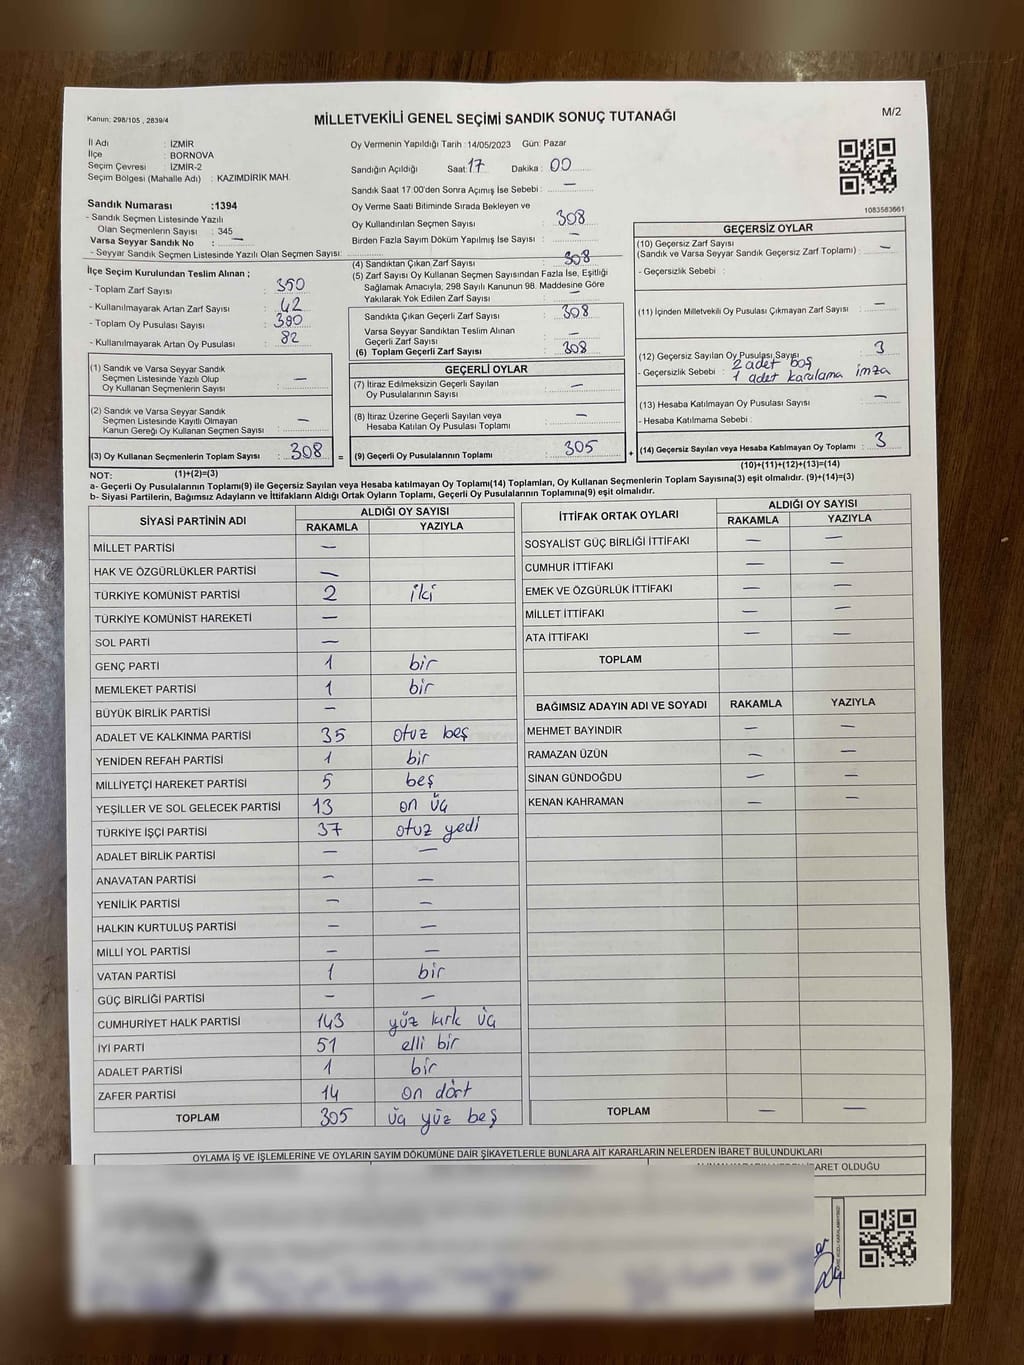 Kanun: 298/105 , 2839/4
MİLLETVEKİLİ GENEL SEÇİMİ SANDIK SONUÇ TUTANAĞI
M/2
İl Adı : İZMİR
İlçe : BORNOVA
Seçim Çevresi : İZMİR-2
Seçim Bölgesi (Mahalle Adı) : KAZIMDİRİK MAH.
Sandık Numarası :1394
- Sandık Seçmen Listesinde Yazılı
Olan Seçmenlerin Sayısı : 345
Varsa Seyyar Sandık No : —
- Seyyar Sandık Seçmen Listesinde Yazılı Olan Seçmen Sayısı:
İlçe Seçim Kurulundan Teslim Alınan ;
- Toplam Zarf Sayısı : 350
- Kullanılmayarak Artan Zarf Sayısı : 42
- Toplam Oy Pusulası Sayısı : 390
- Kullanılmayarak Artan Oy Pusulası : 82
(1) Sandık ve Varsa Seyyar Sandık
Seçmen Listesinde Yazılı Olup
Oy Kullanan Seçmenlerin Sayısı : —
(2) Sandık ve Varsa Seyyar Sandık
Seçmen Listesinde Kayıtlı Olmayan
Kanun Gereği Oy Kullanan Seçmen Sayısı : —
(3) Oy Kullanan Seçmenlerin Toplam Sayısı : 308
(1)+(2)=(3)
Oy Vermenin Yapıldığı Tarih : 14/05/2023 Gün: Pazar
Sandığın Açıldığı Saat: 17 Dakika : 00
Sandık Saat 17.00'den Sonra Açımış İse Sebebi : —
Oy Verme Saati Bitiminde Sırada Bekleyen ve
Oy Kullandırılan Seçmen Sayısı : 308
Birden Fazla Sayım Döküm Yapılmış İse Sayısı : —
(4) Sandıktan Çıkan Zarf Sayısı : 308
(5) Zarf Sayısı Oy Kullanan Seçmen Sayısından Fazla İse, Eşitliği
Sağlamak Amacıyla; 298 Sayılı Kanunun 98. Maddesine Göre
Yakılarak Yok Edilen Zarf Sayısı : —
Sandıkta Çıkan Geçerli Zarf Sayısı : 308
Varsa Seyyar Sandıktan Teslim Alınan
Geçerli Zarf Sayısı : —
(6) Toplam Geçerli Zarf Sayısı : 308
GEÇERLİ OYLAR
(7) İtiraz Edilmeksizin Geçerli Sayılan
Oy Pusulalarının Sayısı : —
(8) İtiraz Üzerine Geçerli Sayılan veya
Hesaba Katılan Oy Pusulası Toplamı : —
= (9) Geçerli Oy Pusulalarının Toplamı : 305 +
1083583661
GEÇERSİZ OYLAR
(10) Geçersiz Zarf Sayısı
(Sandık ve Varsa Seyyar Sandık Geçersiz Zarf Toplamı) : —
- Geçersizlik Sebebi :
(11) İçinden Milletvekili Oy Pusulası Çıkmayan Zarf Sayısı : —
(12) Geçersiz Sayılan Oy Pusulası Sayısı : 3
2 adet boş
- Geçersizlik Sebebi : 1 adet karalama imza
(13) Hesaba Katılmayan Oy Pusulası Sayısı : —
- Hesaba Katılmama Sebebi :
(14) Geçersiz Sayılan veya Hesaba Katılmayan Oy Toplamı : 3
(10)+(11)+(12)+(13)=(14)
NOT:
a- Geçerli Oy Pusulalarının Toplamı(9) ile Geçersiz Sayılan veya Hesaba katılmayan Oy Toplamı(14) Toplamları, Oy Kullanan Seçmenlerin Toplam Sayısına(3) eşit olmalıdır. (9)+(14)=(3)
b- Siyasi Partilerin, Bağımsız Adayların ve İttifakların Aldığı Ortak Oyların Toplamı, Geçerli Oy Pusulalarının Toplamına(9) eşit olmalıdır.
SİYASİ PARTİNİN ADI
ALDIĞI OY SAYISI
RAKAMLA YAZIYLA
MİLLET PARTİSİ —
HAK VE ÖZGÜRLÜKLER PARTİSİ —
TÜRKİYE KOMÜNİST PARTİSİ 2 iki
TÜRKİYE KOMÜNİST HAREKETİ —
SOL PARTİ —
GENÇ PARTİ 1 bir
MEMLEKET PARTİSİ 1 bir
BÜYÜK BİRLİK PARTİSİ —
ADALET VE KALKINMA PARTİSİ 35 otuz beş
YENİDEN REFAH PARTİSİ 1 bir
MİLLİYETÇİ HAREKET PARTİSİ 5 beş
YEŞİLLER VE SOL GELECEK PARTİSİ 13 on üç
TÜRKİYE İŞÇİ PARTİSİ 37 otuz yedi
ADALET BİRLİK PARTİSİ — —
ANAVATAN PARTİSİ — —
YENİLİK PARTİSİ — —
HALKIN KURTULUŞ PARTİSİ — —
MİLLİ YOL PARTİSİ — —
VATAN PARTİSİ 1 bir
GÜÇ BİRLİĞİ PARTİSİ — —
CUMHURİYET HALK PARTİSİ 143 yüz kırk üç
İYİ PARTİ 51 elli bir
ADALET PARTİSİ 1 bir
ZAFER PARTİSİ 14 on dört
TOPLAM 305 üç yüz beş
İTTİFAK ORTAK OYLARI
ALDIĞI OY SAYISI
RAKAMLA YAZIYLA
SOSYALİST GÜÇ BİRLİĞİ İTTİFAKI — —
CUMHUR İTTİFAKI — —
EMEK VE ÖZGÜRLÜK İTTİFAKI — —
MİLLET İTTİFAKI — —
ATA İTTİFAKI — —
TOPLAM
BAĞIMSIZ ADAYIN ADI VE SOYADI RAKAMLA YAZIYLA
MEHMET BAYINDIR — —
RAMAZAN ÜZÜN — —
SİNAN GÜNDOĞDU — —
KENAN KAHRAMAN — —
TOPLAM — —
OYLAMA İŞ VE İŞLEMLERİNE VE OYLARIN SAYIM DÖKÜMÜNE DAİR ŞİKAYETLERLE BUNLARA AİT KARARLARIN NELERDEN İBARET BULUNDUKLARI
OLDUĞU